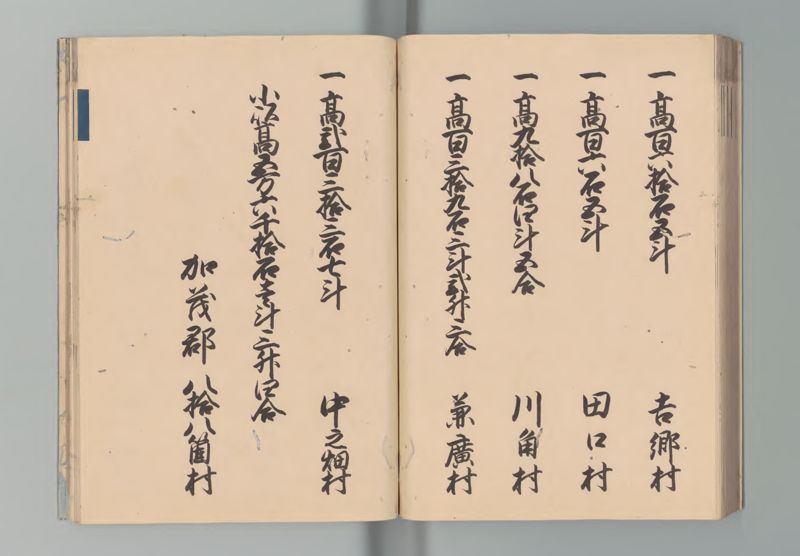 一高百六拾石五斗 吉郷村
一高百六石五斗 田口村
一高九拾八石四斗五合 川角村
一高百三拾九石三斗弐升三合 兼廣村
一高弐百三拾三石七斗 中之畑村
小以高五万六千拾石壱斗三升四合
加茂郡 八拾八箇村